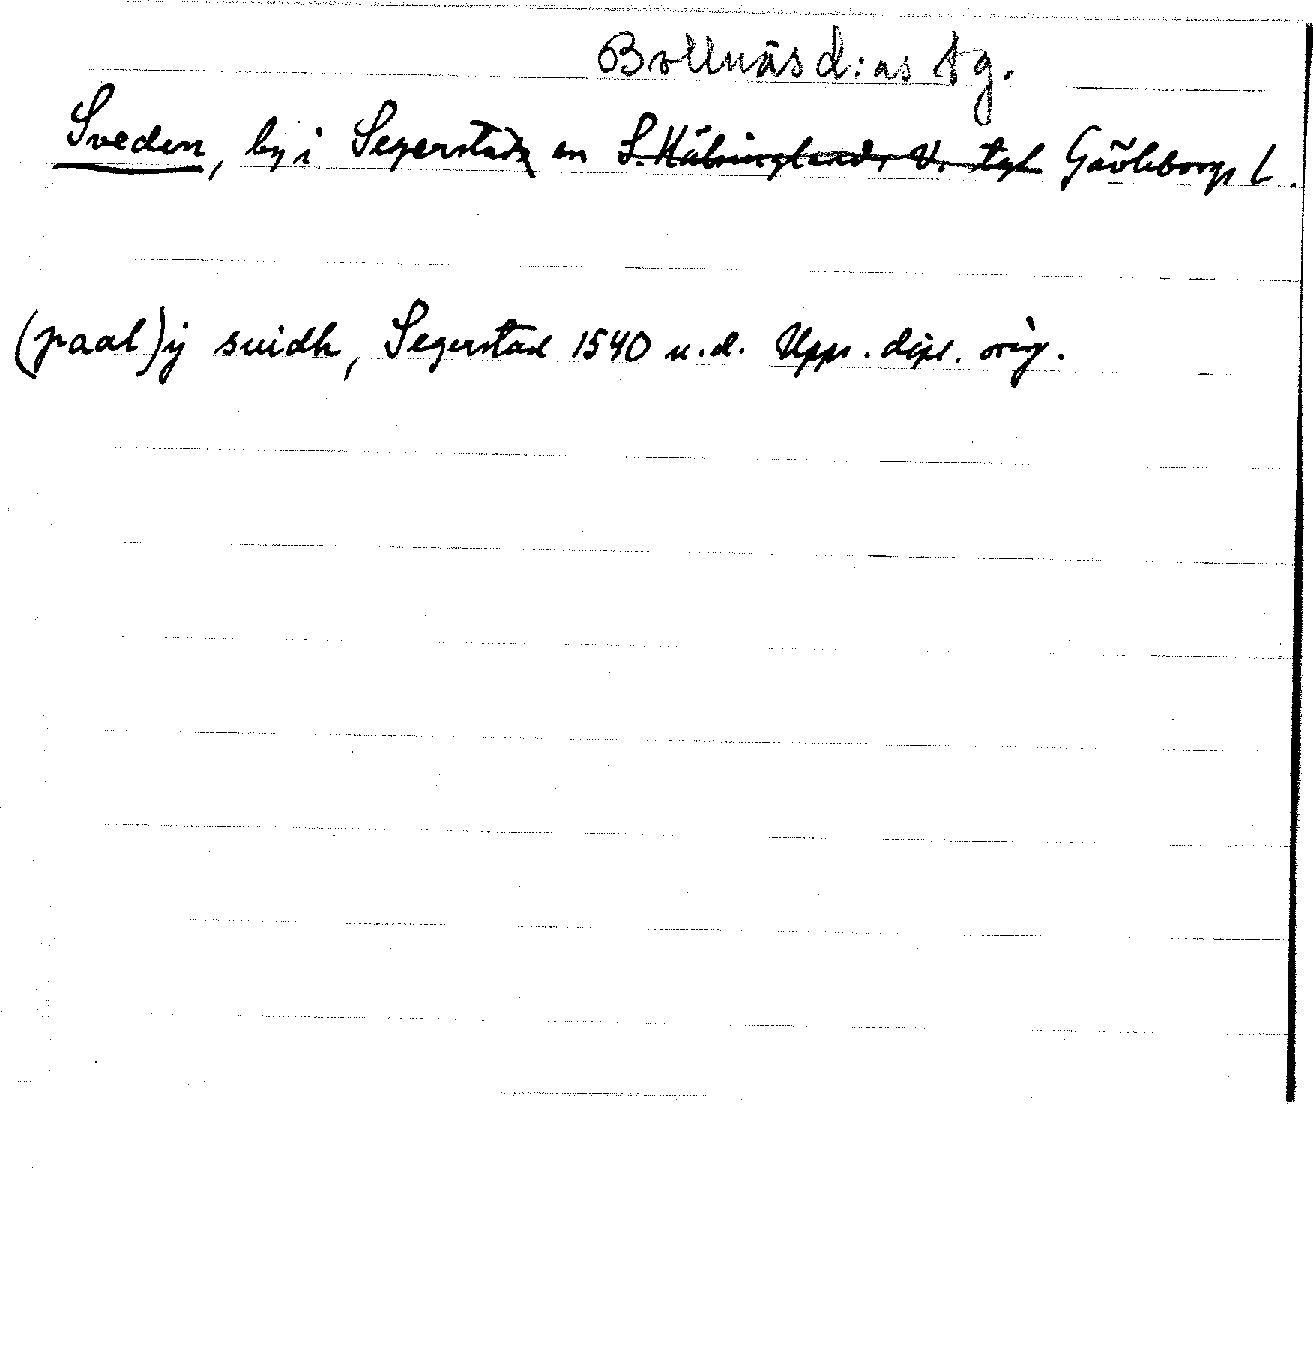 Bollnäs d:as tg.
Sveden, by i Segerstads sn S. Hälsinglands V. tgl Gävleborgs l.
(paal) ij suidh, Segerstad 1540 u.d. Upps. dipl. orig.